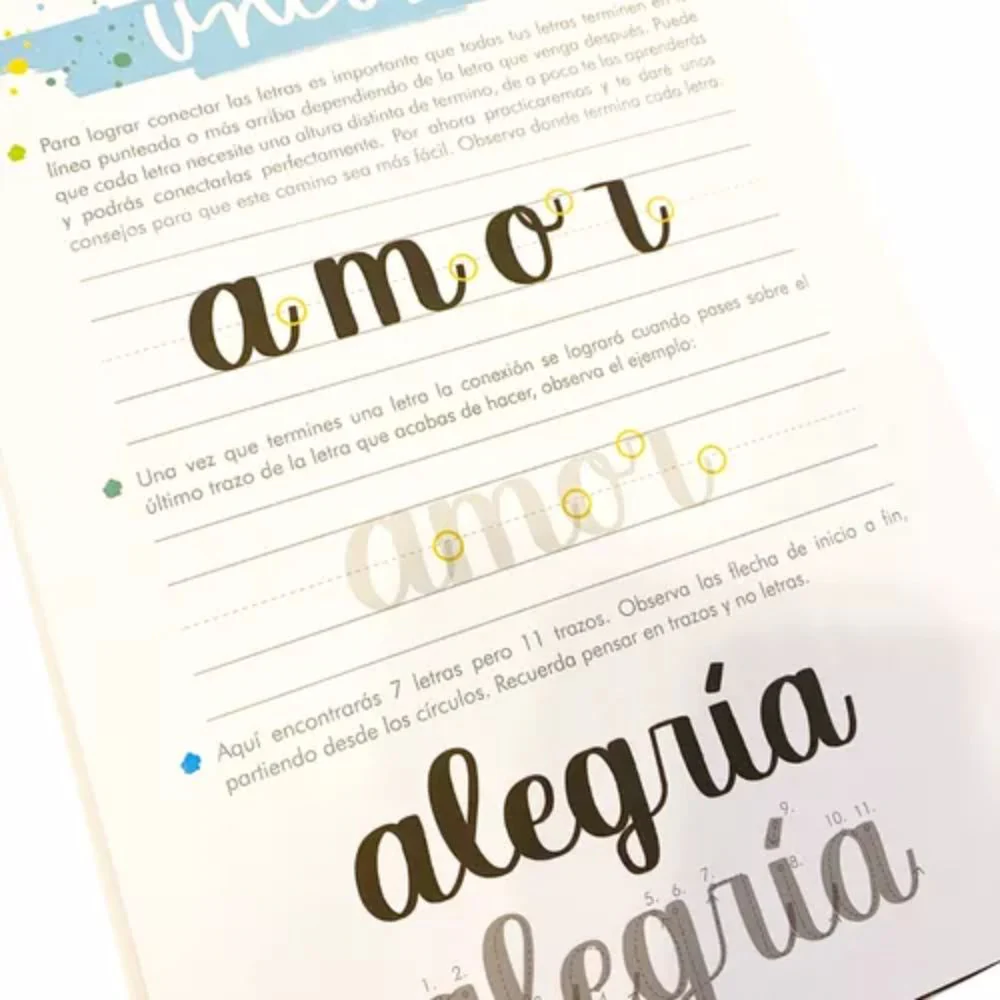 Para lograr conectar las letras es importante que todas tus letras terminen en
línea punteada o más arriba dependiendo de la letra que venga después. Puede
que cada letra necesite una altura distinta de termino, de a poco te las aprenderás
y podrás conectarlas perfectamente. Por ahora practicaremos y te daré unos
consejos para que este camino sea más fácil. Observa donde termina cada letra:
amor
Una vez que termines una letra la conexión se logrará cuando pases sobre el
último trazo de la letra que acabas de hacer, observa el ejemplo:
amor
Aquí encontrarás 7 letras pero 11 trazos. Observa las flecha de inicio a fin,
partiendo desde los círculos. Recuerda pensar en trazos y no letras.
alegría
9.
10. 11.
8.
5. 6. 7.
1. 2.
alegría